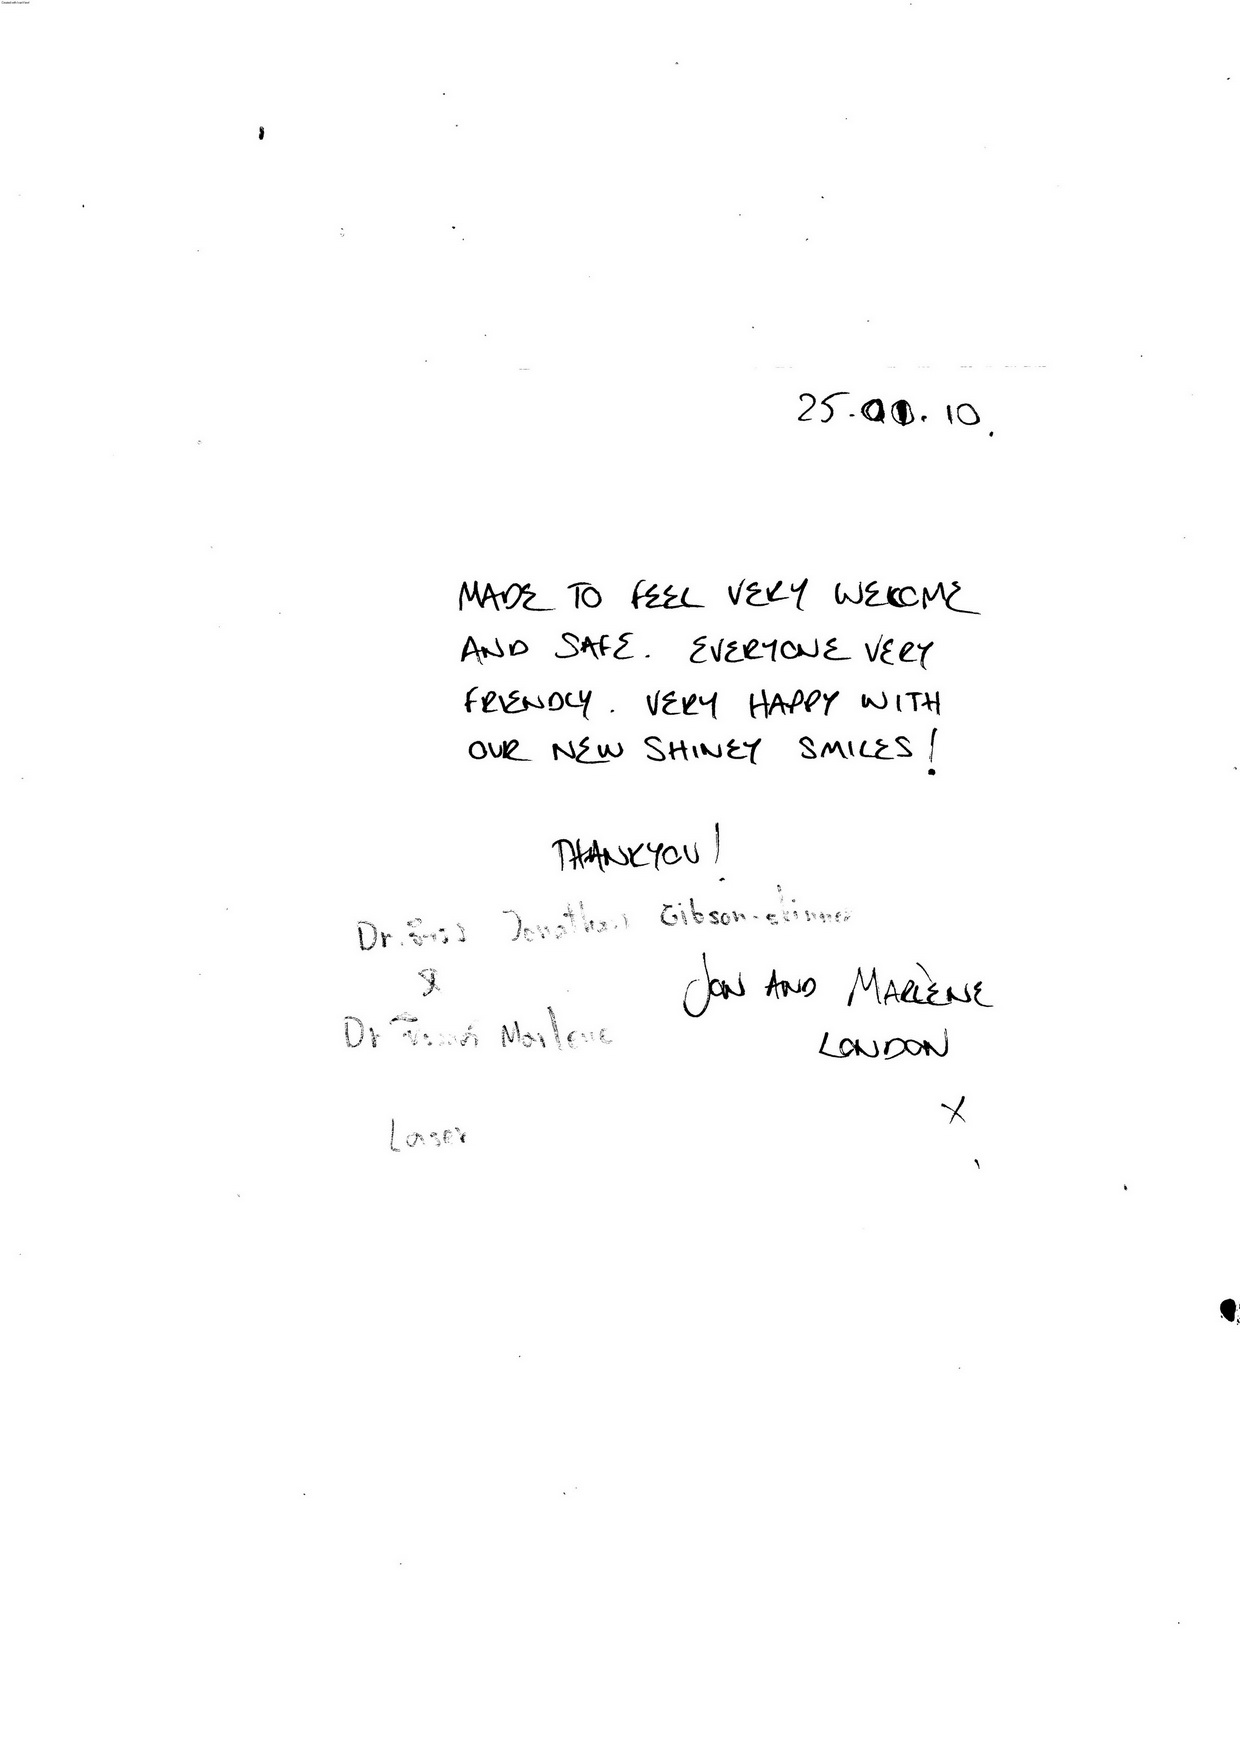 25.01.10.
MADE TO FEEL VERY WELCOME
AND SAFE. EVERYONE VERY
FRIENDLY. VERY HAPPY WITH
OUR NEW SHINEY SMILES!
THANKYOU!
Dr. Jonathan Gibson-skinner
JON AND MARLÈNE
Dr Marlene
LONDON
X
Laser